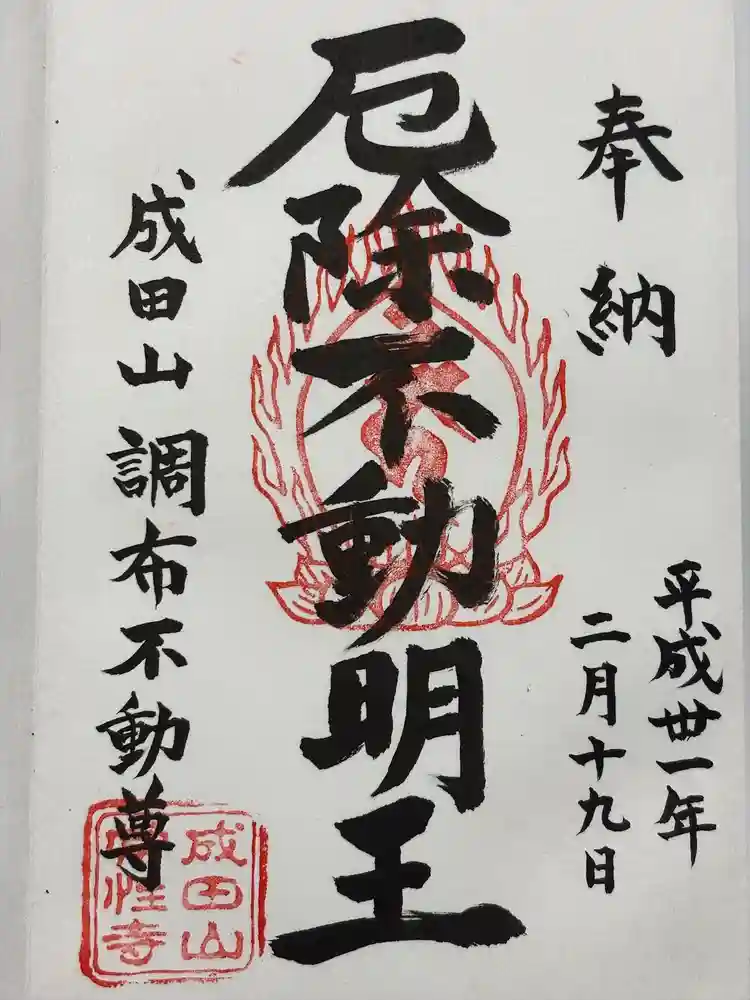 奉納
平成丗一年
二月十九日
厄除不動明王
成田山 調布不動尊
成田山
性寺